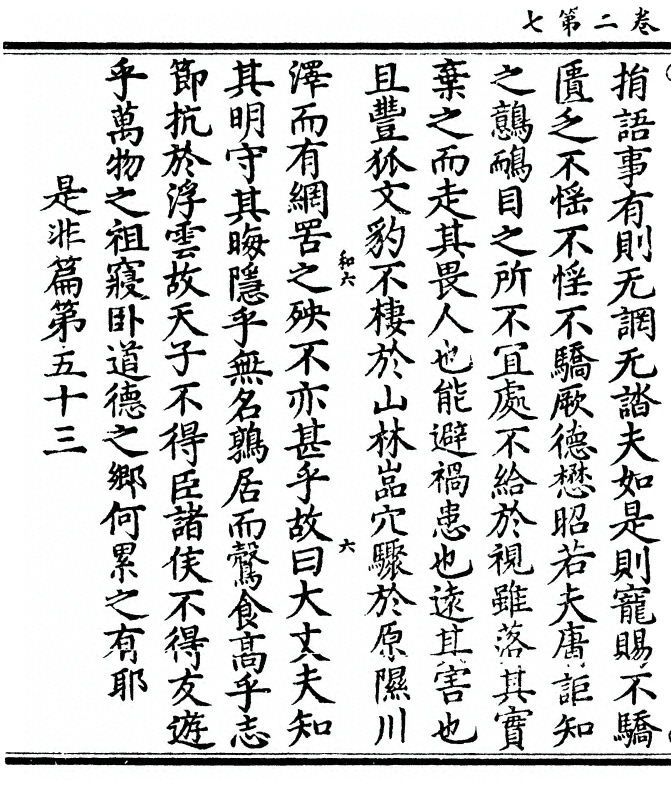 卷二第七
指語事有則无調无諮夫如是則寵賜不驕
匱乏不慆不惟不驕厥德懋昭若夫庸詎知
之鷾鴯目之所不宜處不給於視雖落其實
棄之而走其畏人也能避禍患也遠其害也
且豐狐文豹不棲於山林嵓穴驟於原隰川
和六
澤而有網罟之殃不亦甚乎故曰大丈夫知
六
其明守其晦隱乎無名鶉居而鷇食高乎志
節抗於浮雲故天子不得臣諸侯不得友遊
乎萬物之祖寢臥道德之鄉何累之有耶
是非篇第五十三